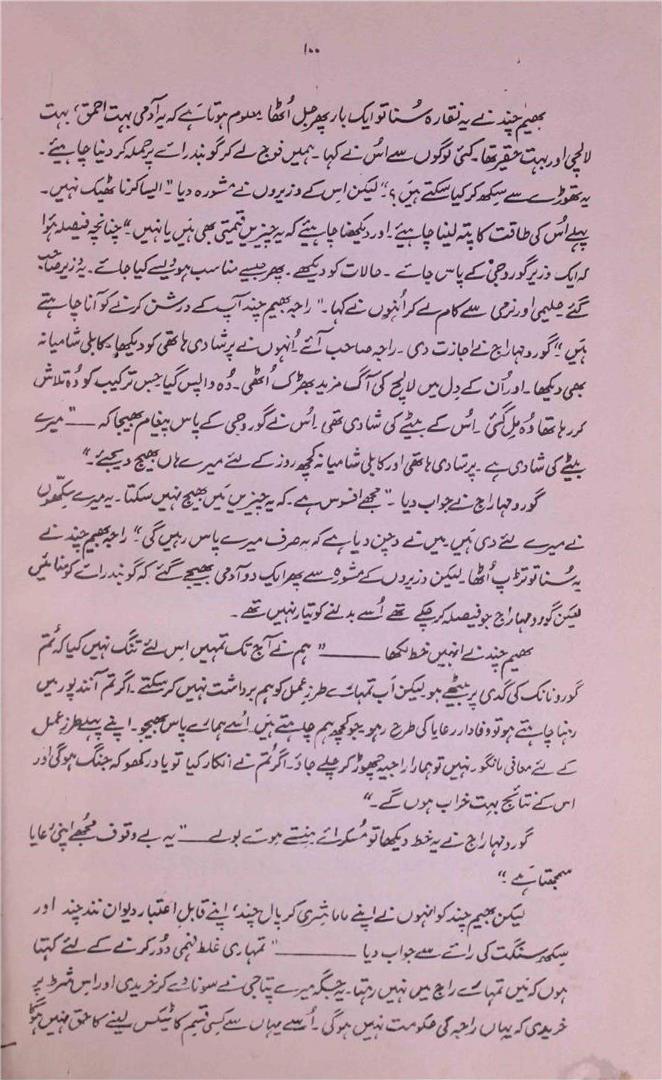 ۱۰۰
بھیم چند نے یہ نقارہ سُنا تو ایک بار پھر جل اُٹھا۔ معلوم ہوتا ہے کہ یہ آدمی بہت احمق، بہت
لالچی اور بہت حقیر تھا۔ کئی لوگوں سے اس نے کہا۔ ہمیں فوج لے کر گوبند رائے پر حملہ کر دینا چاہیئے۔
یہ تھوڑے سے سکھ کر کیا سکتے ہیں؟“ لیکن اس کے وزیروں نے مشورہ دیا ”ایسا کرنا ٹھیک نہیں۔
پہلے اُس کی طاقت کا پتہ لینا چاہیئے۔ اور دیکھنا چاہیئے کہ یہ چیزیں قیمتی بھی ہیں یا نہیں۔“ چنانچہ فیصلہ ہوا
کہ ایک وزیر گورو جی کے پاس جائے۔ حالات کو دیکھے۔ پھر جیسے مناسب ہو ویسے کیا جائے۔ یہ وزیر صاحب
گئے۔ حلیمی اور نرمی سے کام لے کر اُنہوں نے کہا۔ ”راجہ بھیم چند آپ کے درشن کرنے کو آنا چاہتے
ہیں“ گورو مہاراج نے اجازت دی۔ راجہ صاحب آئے۔ اُنہوں نے پرشادی ہاتھی کو دیکھا۔ کابلی شامیانہ
بھی دیکھا۔ اور اُن کے دِل میں لالچ کی آگ مزید بھڑک اُٹھی۔ وُہ واپس گیا جس ترکیب کو وُہ تلاش
کر رہا تھا وُہ مِل گئی۔ اُس کے بیٹے کی شادی تھی۔ اُس نے گورو جی کے پاس پیغام بھیجا کہ ــــ ”میرے
بیٹے کی شادی ہے۔ پرشادی ہاتھی اور کابلی شامیانہ کچھ روز کے لئے میرے ہاں بھیج دیجئے۔“
گورو مہاراج نے جواب دیا۔ ”مجھے افسوس ہے۔ کہ یہ چیزیں مَیں بھیج نہیں سکتا۔ یہ میرے سِکھّوں
نے میرے لئے دی ہَیں۔ مَیں نے وچن دیا ہے کہ یہ صرف میرے پاس رہیں گی“ راجہ بھیم چند نے
یہ سُنا تو تڑپ اُٹھا۔ لیکن وزیروں کے مشورہ سے پھر ایک دو آدمی بھیجے گئے کہ گوبند رائے کو منائیں
لیکن گورو مہاراج جو فیصلہ کر چکے تھے اُسے بدلنے کو تیار نہیں تھے۔
بھیم چند نے انہیں خط لکھا ــــــــ ”ہم نے آج تک تمہیں اس لئے تنگ نہیں کیا کہ تُم
گورو نانک کی گدی پر بیٹھے ہو۔ لیکن اَب تمہارے طرزِ عمل کو ہم برداشت نہیں کر سکتے۔ اگر تم آنند پور میں
رہنا چاہتے ہو تو وفادار رعایا کی طرح رہو۔ جو کچھ ہم چاہتے ہیں اُسے ہمارے پاس بھیجو۔ اپنے پہلے طرزِ عمل
کے لئے معافی مانگو ورنہیں تو ہمارا راجیہ چھوڑ کر چلے جاؤ۔ اگر تُم نے انکار کیا تو یاد رکھو کہ جنگ ہو گی اور
اس کے نتائج بہت خراب ہوں گے۔“
گورو مہاراج نے یہ خط دیکھا تو مُسکرائے ہنستے ہوئے بولے ــــ ”یہ بے وقوف مُجھے اپنی رُعایا
سمجھتا ہَے۔“
لیکن بھیم چند کو انہوں نے اپنے ماما شری کرپال چند، اپنے قابلِ اعتبار دیوان نند چند اور
سِکھ سنگت کی رائے سے جواب دیا ــــــــ ”تمہاری غلط فہمی دُور کرنے کے لئے کہتا
ہوں کہ مَیں تمہارے راج میں نہیں رہتا۔ یہ جگہ میرے پتاجی نے سونا دے کر خریدی اور اِس شرط پر
خریدی کہ یہاں راجہ کی حکومت نہیں ہو گی۔ اُسے یہاں سے کسی قسم کا ٹیکس لینے کا حق نہیں ہوگا